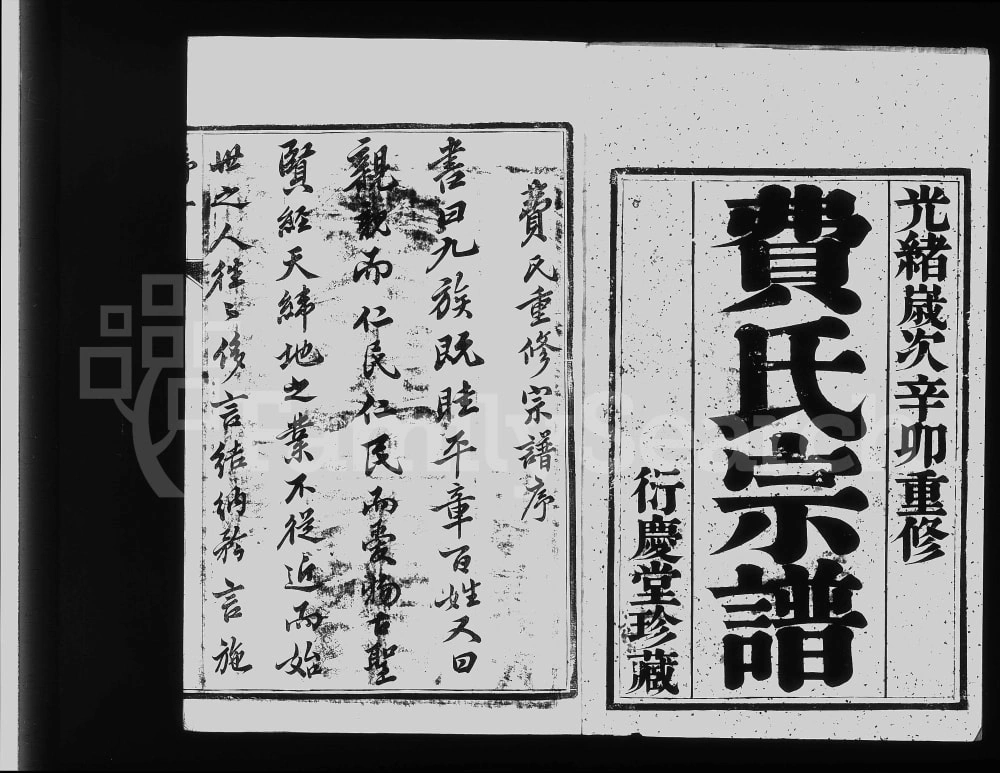 光緒歲次辛卯重修
費氏宗譜
衍慶堂珍藏
費氏重修宗譜序
書曰九族既睦平章百姓又曰
親親而仁民仁民而愛物古聖
賢經天緯地之業不從近而始
世之人往〻侈言結納矜言施
FamilySearch